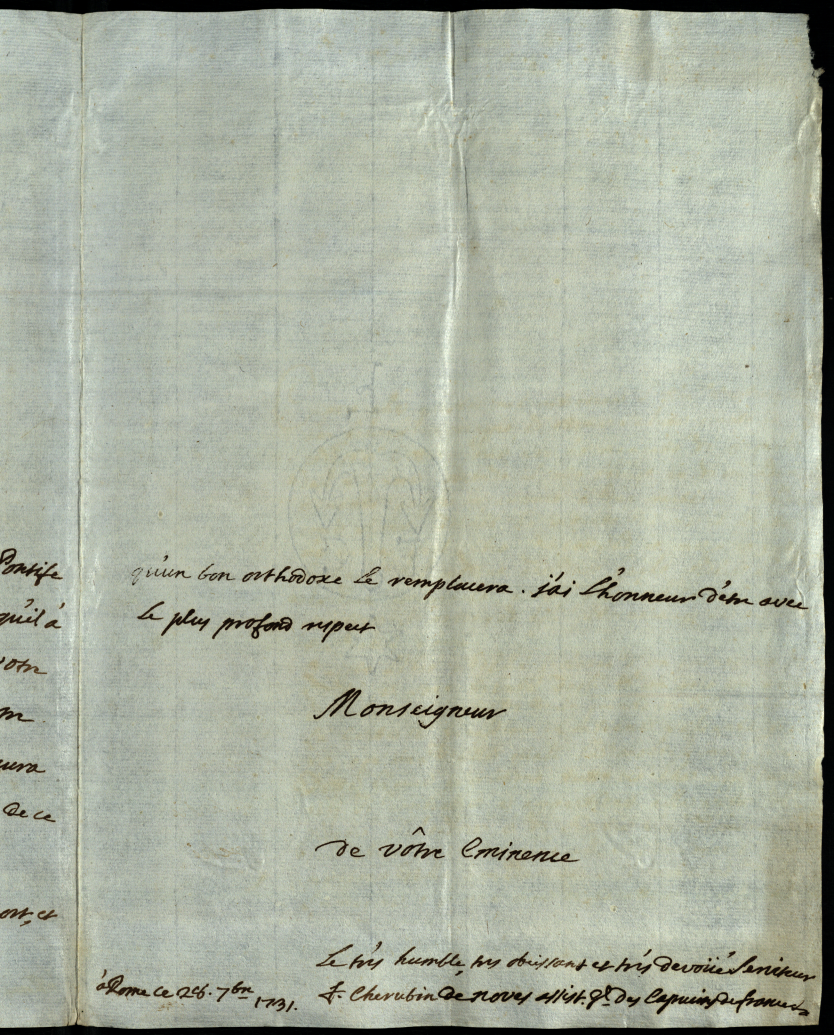 Pontife
qu'il à
votre
aura
de ce
ort, et
qu'un bon orthodoxe le remplacera. j'ai l'honneur d'être avec
le plus profond respect
Monseigneur
de vôtre Eminence
Le très humble, tres obeissant et très devoüé Serviteur
f. Cherubin de noves assist. gl. des Capucins de france
à Rome ce 26. 7bre 1731.